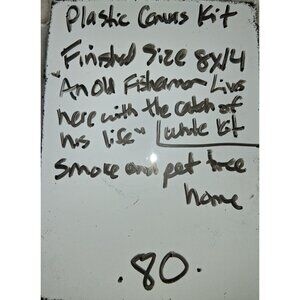 Plastic Canvas Kit
Finished Size 8x14
"An Old Fisherman Lives
here with the catch of
his life" white kit
smoke and pet free
home
.80.